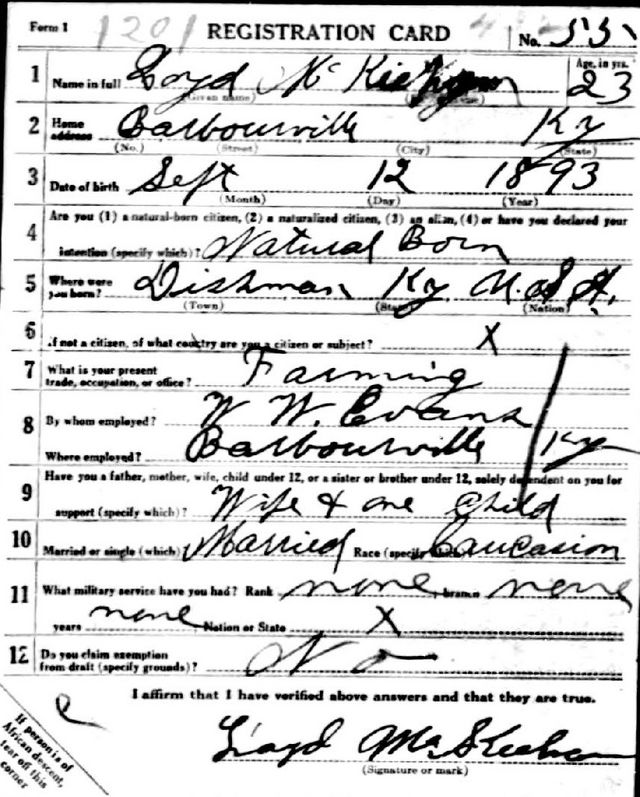 Form 1 1201 REGISTRATION CARD No. 55
1 Name in full Loyd Mc Age, in yrs. 23
(Given name)
2 Home address Barbourville Ky
(No.) (Street) (City) (State)
3 Date of birth Sept 12 1893
(Month) (Day) (Year)
4 Are you (1) a natural-born citizen, (2) a naturalized citizen, (3) an alien, (4) or have you declared your
intention (specify which)? Natural Born
5 Where were you born? Dishman Ky U.S.A.
(Town) (State) (Nation)
6 If not a citizen, of what country are you a citizen or subject? X
7 What is your present trade, occupation, or office? Farming
8 By whom employed? W. W. Evans
Where employed? Barbourville Ky
9 Have you a father, mother, wife, child under 12, or a sister or brother under 12, solely dependent on you for
support (specify which)? Wife & one Child
10 Married or single (which) Married Race (specify which) Caucasion
11 What military service have you had? Rank none , branch none
years none , Nation or State X
12 Do you claim exemption from draft (specify grounds)? No
I affirm that I have verified above answers and that they are true.
Loyd
(Signature or mark)
If person is of
African descent,
tear off this
corner